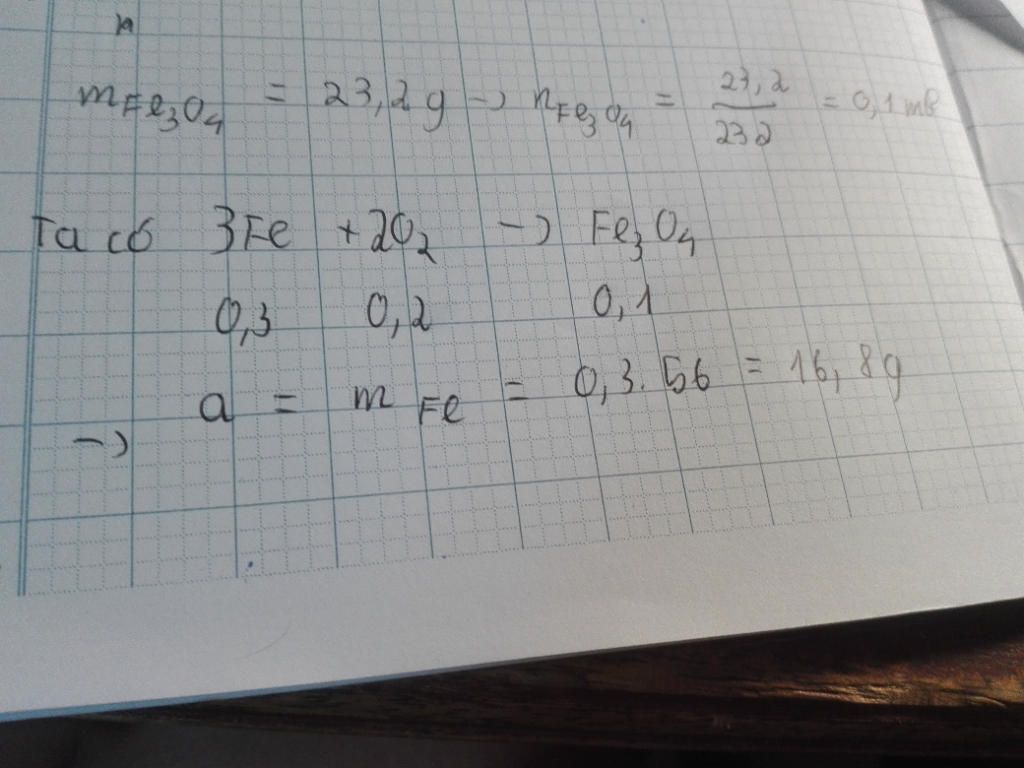 n
mFe₃O₄ = 23,2g → nFe₃O₄ = 23,2/232 = 0,1 mol
Ta có 3Fe + 2O₂ → Fe₃O₄
0,3 0,2 0,1
→ a = mFe = 0,3.56 = 16,8g